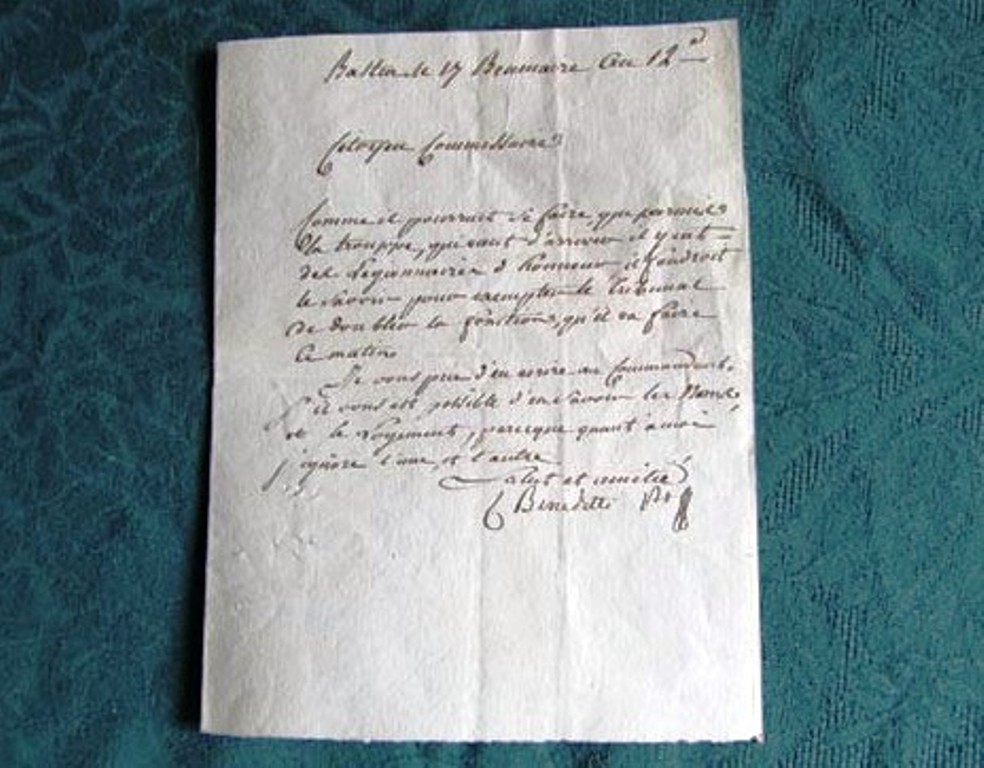 Bastia le 17 Brumaire An 12.e
Citoyen Commissaire
Comme il pourrait se faire, que parmis
la trouppe, qui vient d'arriver il y eut
des Legionnaires d'honneur il faudroit
le savoir pour exempter le Tribunal
de doubler la fonction, qu'il va faire
ce matin
Je vous prie d'en ecrire au Commandant,
s'il vous est possible d'en savoir les Noms,
et le Regiment, parceque quant à moi
j'ignore l'une, et l'autre
Salut et amitié
Benedetti